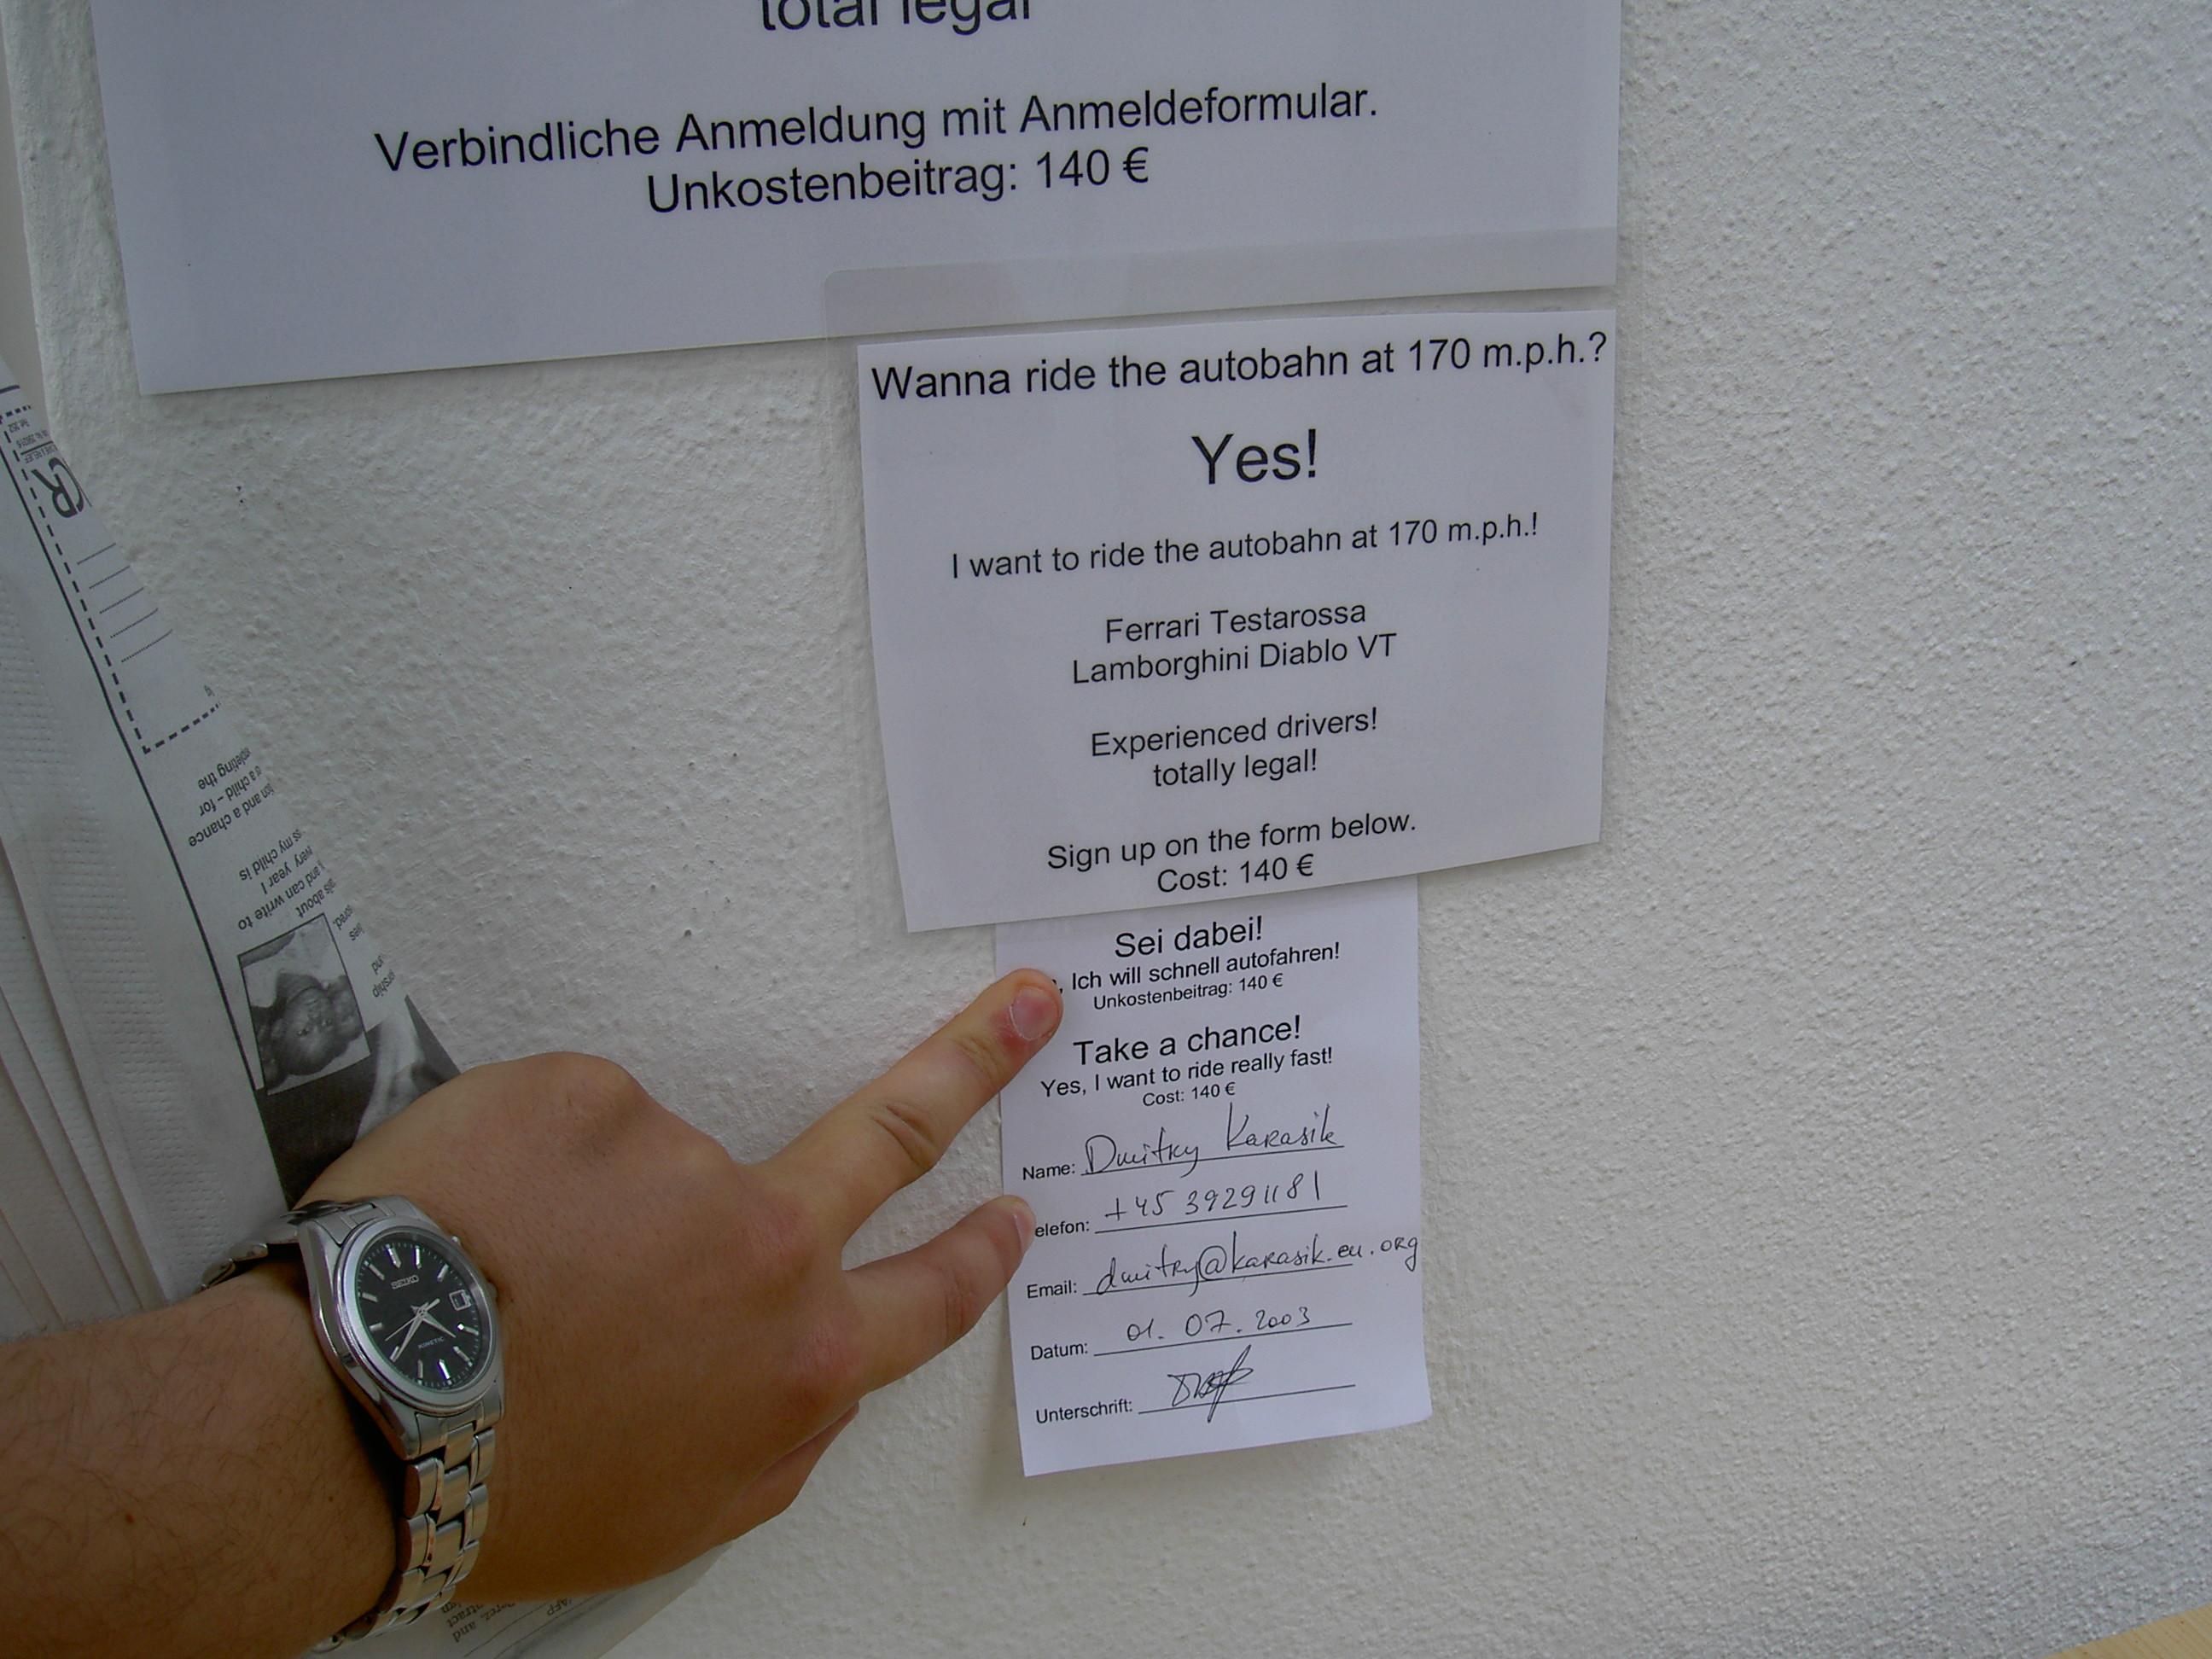 total legal
Verbindliche Anmeldung mit Anmeldeformular.
Unkostenbeitrag: 140 €
Wanna ride the autobahn at 170 m.p.h.?
Yes!
I want to ride the autobahn at 170 m.p.h.!
Ferrari Testarossa
Lamborghini Diablo VT
Experienced drivers!
totally legal!
Sign up on the form below.
Cost: 140 €
Sei dabei!
, Ich will schnell autofahren!
Unkostenbeitrag: 140 €
Take a chance!
Yes, I want to ride really fast!
Cost: 140 €
Name: Dmitry Karasik
elefon: +45 39291181
Email: dmitry@karasik.eu.org
Datum: 01. 07. 2003
Unterschrift:
SEIKO
KINETIC
pleting the
is a child - for
ion and a chance
ss my child is
very year I
and can write to
about